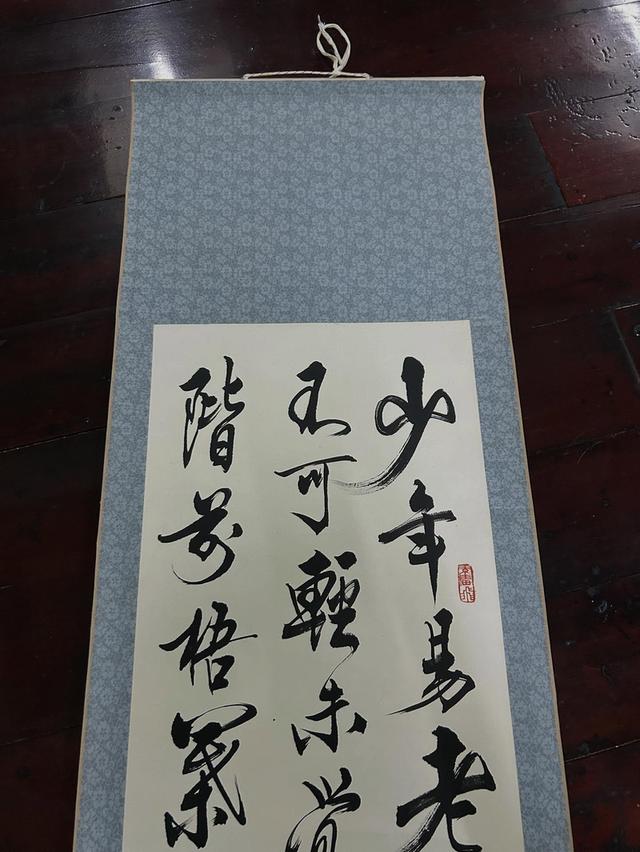 少年易老
不可輕未覺
階前梧葉